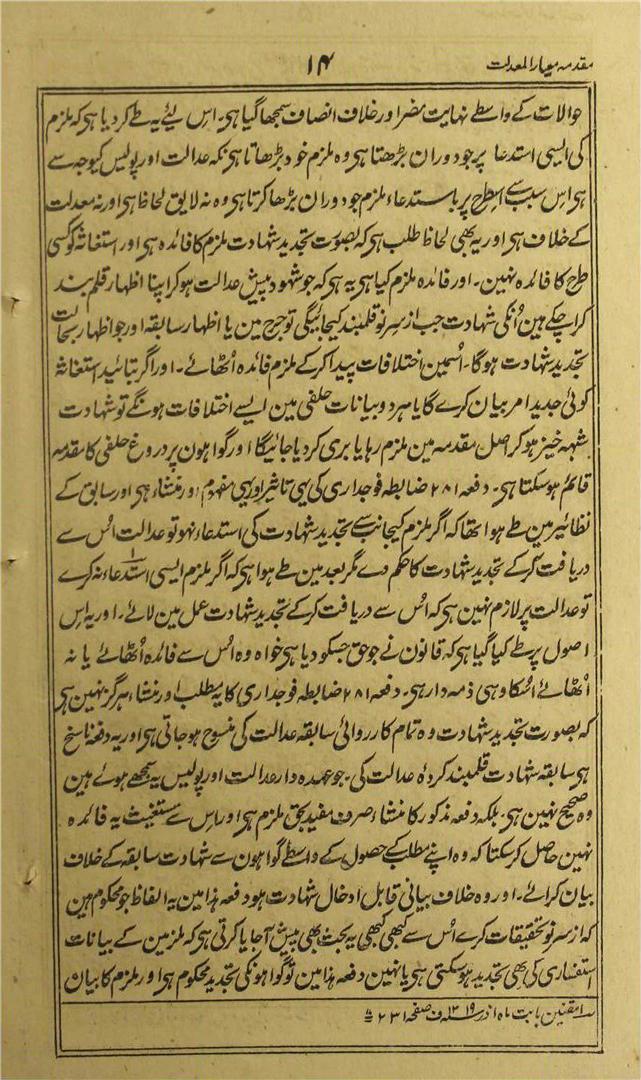 مقدمہ معیار المعدلت
۱۴
حوالات کے واسطے نہایت مضر اور خلاف انصاف سمجھا گیا ہی۔ اس لیئے یہ طے کردیا ہی کہ ملزم
کی ایسی استدعا پر جو دوران بڑھتا ہی وہ ملزم خود بڑھاتا ہی نکہ عدالت اور پولیس کیوجہ سے
ہی اس سبب سے اسطرح پر باستدعاء ملزم جو دوران بڑھا کرتا ہی وہ نہ لایق لحاظ ہی اور نہ معدلت
کے خلاف ہی اور یہ بھی لحاظ طلب ہی کہ بصورت تجدید شہادت ملزم کا فائدہ ہی اور استغاثہ کو کسی
طرح کا فائدہ نہین۔ اور فائدہ ملزم کیا ہی یہ ہی کہ جو شہود پیش عدالت ہوکر اپنا اظہار قلم بند
کراچکے ہین اُنکی شہادت جب از سر نو قلمبند کیجائیگی تو جرح مین یا اظہار سابقہ اور جو اظہار بحالت
تجدید شہادت ہوگا۔ اُسمین اختلافات پیدا کرکے ملزم فائدہ اُٹھائے۔ اور اگر بتائید استغاثہ
کوئی جدید امر بیان کرے گا یا ہر دو بیانات حلفی مین ایسے اختلافات ہونگے تو شہادت
شبہہ خیز ہوکر اصل مقدمہ مین ملزم رہا یا بری کردیا جائیگا اور گواہون پر دروغ حلفی کا مقدمہ
قائم ہوسکتا ہی۔ دفعہ ۲۸۱ ضابطہ فوجداری کی یہی تاثیر اور یہی مفہوم اور منشاء ہی اور سابق کے
نظائیر مین طے ہوا تھا کہ اگر ملزم کیجانب سے تجدید شہادت کی استدعاء نہو تو عدالت اُس سے
دریافت کرکے تجدید شہادت کا حکم دے مگر بعد مین طے ہوا ہی کہ اگر ملزم ایسی استدعاء نہ کرے
تو عدالت پر لازم نہین ہی کہ اُس سے دریافت کرکے تجدید شہادت عمل مین لائے۔ اور یہ اِس
اصول پر طے کیا گیا ہی کہ قانون نے جو حق جسکو دیا ہی خواہ وہ اُس سے فائدہ اُٹھائے یا نہ
اُٹھائے اُسکا وہی ذمہ دار ہی۔ دفعہ ۲۸۱ ضابطہ فوجداری کا یہ مطلب اور منشاء ہرگز نہین ہی
کہ بصورت تجدید شہادت وہ تمام کارروائی سابقہ عدالت کی منسوخ ہوجاتی ہی اور یہ دفعہ ناسخ
ہی سابقہ شہادت قلمبند کردہ عدالت کی۔ جو عہدہ دار عدالت اور پولیس یہ سمجھے ہوئے ہین
وہ صحیح نہین ہی۔ بلکہ دفعہ مذکور کا منشاء صرف مفید بحق ملزم ہی اور اس سے مستغیث یہ فائدہ
نہین حاصل کرسکتا کہ وہ اپنے مطلب کے حصول کے واسطے گواہون سے شہادت سابقہ کے خلاف
بیان کرائے۔ اور وہ خلاف بیانی قابل ادخال شہادت ہو دفعہ ہذا مین یہ الفاظ جو محکوم ہین
کہ از سر نو تحقیقات کرے اُس سے کبھی کبھی یہ بحث بھی پیش آجایا کرتی ہی کہ ملزمین کے بیانات
استفساری کی بھی تجدید ہوسکتی ہی یا نہین دفعہ ہذا مین تو گواہونکی تجدید محکوم ہی اور ملزم کا بیان
مقنین بابت ماہ آذر ۱۳۱۹ ف صفحہ ۲۳۱